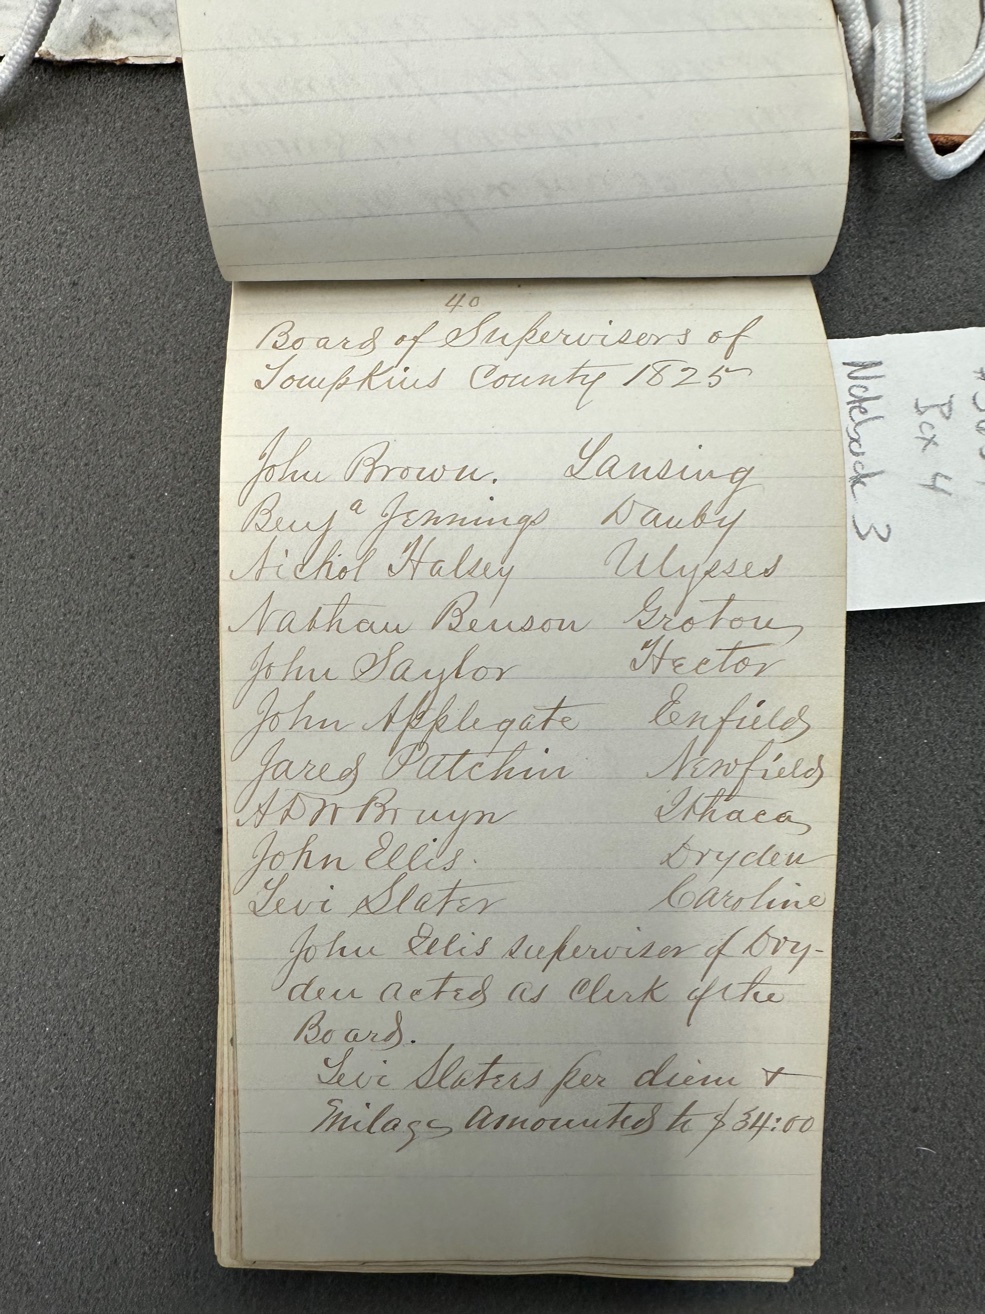 40
Board of Supervisors of
Tompkins County 1825
John Brown. Lansing
Benj a Jennings Danby
Nichol Halsey Ulysses
Nathan Benson Groton
John Saylor Hector
John Applegate Enfield
Jared Patchin Newfield
A D W Bruyn Ithaca
John Ellis. Dryden
Levi Slater Caroline
John Ellis supervisor of Dry-
den acted as Clerk of the
Board.
Levi Slaters per diem &
Milage amounted to $34:00
Box 4
Notebook 3